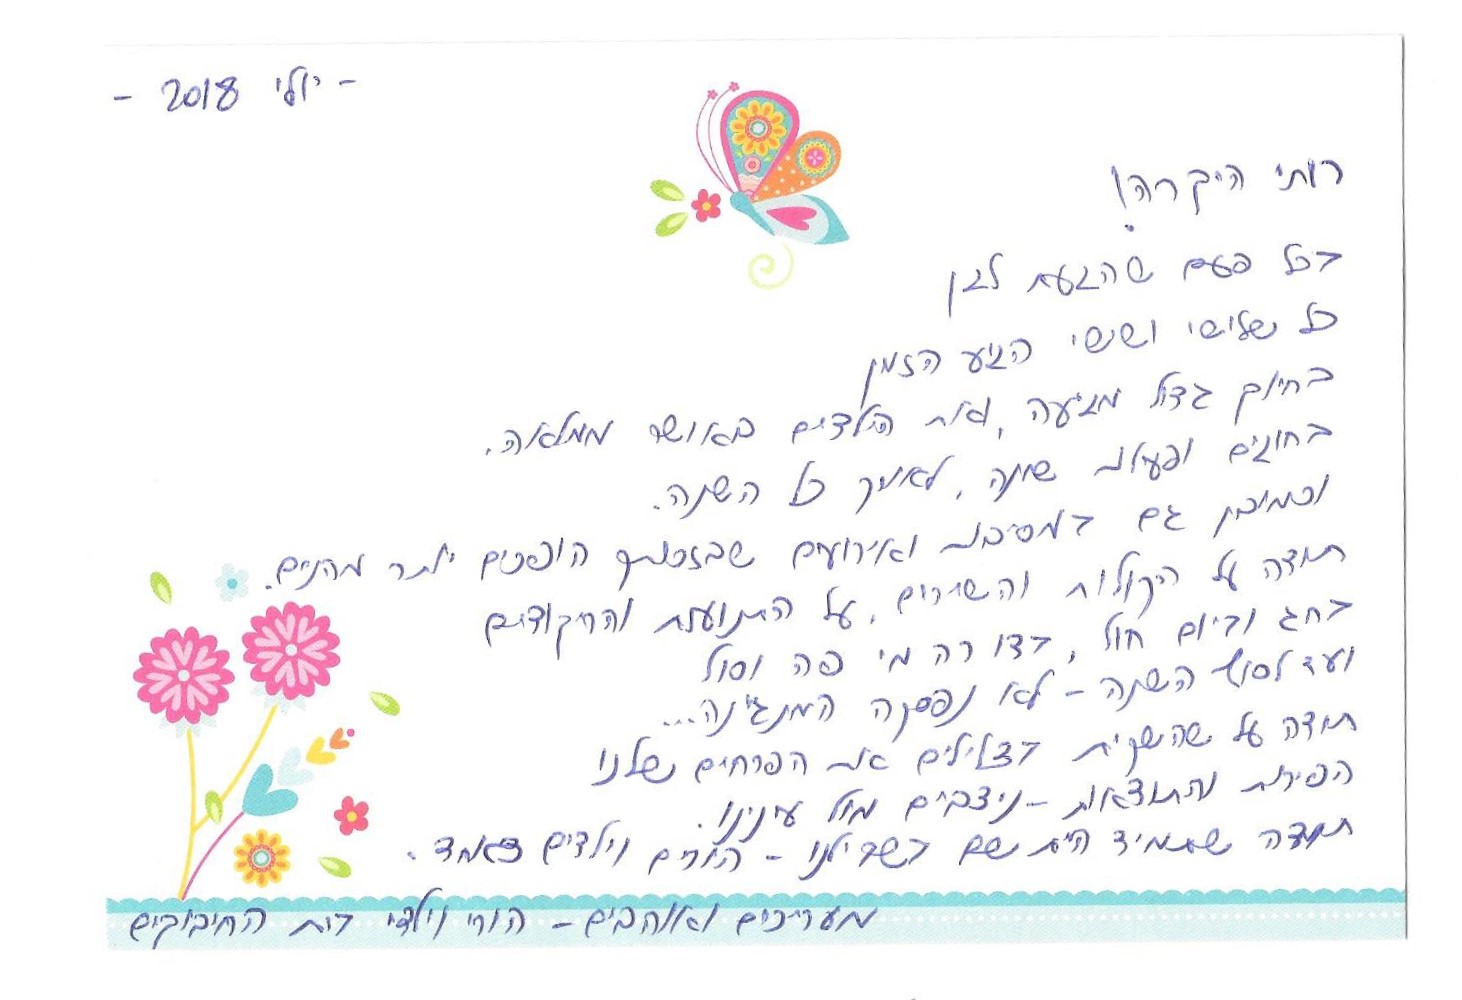 - יולי 2018 -
רותי היקרה!
בכל פעם שהגעת לגן
כל שלישי ושישי הגיע הזמן
בחיוך גדול מגיעה, ואת הילדים באושר ממלאה.
בחוגים ופעילות שונה, לאורך כל השנה.
וכמובן גם במסיבות ואירועים שבזכותך הופכים יותר מהנים.
תודה על הקולות והשירים, על התנועות והריקודים
בחג וביום חול, בדו רה מי פה וסול
ועד לסוף השנה - לא נפסקה המנגינה...
תודה על שהשקית בצלילים את הפרחים שלנו
הפירות והתוצאות - ניצבים מול עינינו.
תודה שתמיד היית שם בשבילנו - הורים וילדים כאחד.
מעריכים ואוהבים - הורי וילדי בית החיבוקים